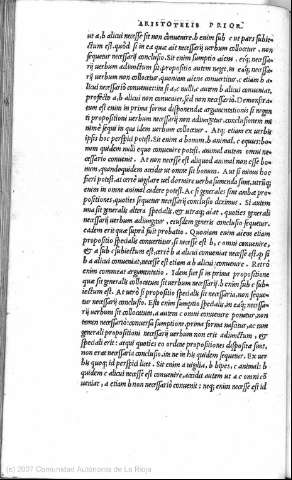 ARISTOTELIS PRIOR.
ut a, b alicui necesse sit non conuenire. b enim sub c ut pars subie
ctum est. quòd si in ea quæ ait necessarij uerbum collocetur, non
sequetur necessarij conclusio. Sit enim sumptio aiens, eiq; necessa-
rij uerbum adiunctum sit. propositio autem neget, in eaq; necessa-
rij uerbum non collocetur, quoniam aiens conuertitur. c etiam b a-
licui necessariò conueniet. si a, c nulli, c autem b alicui conueniat,
profectò a, b alicui non conueniet, sed non necessariò. Demonstra-
tum est enim in prima forma disponenda argumentationis si negan
ti propositioni uerbum necessarij non adiungetur, conclusionem mi
nime sequi in qua idem uerbum collocetur. Atq; etiam ex uerbis
ipsis hoc perspici potest. Sit enim a bonum, b animal, c equus: bo-
num quidem nulli equo conuenire potest, animal autem omni ne-
cessariò conuenit. At non necesse est aliquod animal non esse bo-
num, quandoquidem accidet ut omne sit bonum. Aut si minus hoc
fieri potest, at certè uigilare uel dormire uerba sumenda sunt, utriusq;
enim in omne animal cadere potest. Ac si generales sint ambæ pro-
positiones, quoties sequetur necessarij conclusio diximus. Si autem
una sit generalis altera specialis, & utraq; aiat, quoties generali
necessarij uerbum adiungetur, eiusdem generis conclusio sequetur.
eadem erit quæ suprà fuit probatio. Quoniam enim aiens etiam
propositio specialis conuertitur, si necesse est b, c omni conuenire,
& a sub c subiectum est, certè b a alicui conuenire necesse est. quòd si
b a alicui conuenire, necesse est etiam a b alicui conuenire. Retrò
enim commeat argumentatio. Idem fiet si in prima propositione
quæ sit generalis collocatum sit uerbum necessarij. b enim sub c sub-
iectum est. At uerò si propositio specialis sit necessaria, non sequi-
tur necessarij conclusio. Esto enim sumptio specialis, in eaq; necessa-
rij uerbum sit collocatum, a autem c omni conuenire ponatur, non
tamen necessariò: conuersa sumptione, prima forma nascitur, ac cum
generali propositioni necessarij uerbum non erit adiunctum, &
speciali erit: atqui quoties eo ordine propositiones dispositæ sunt,
non erat necessaria conclusio, itaque ne in his quidem sequetur. Ex uer
bis quoq; id perspici licet. Sit enim a uigilia, b bipes, c animal: b
quidem c alicui necesse est conuenire, accidet autem ut a c omni cõ
ueniat, a etiam b non necessariò conuenit: neq; enim necesse est id
(c) 2007 Comunidad Autónoma de La Rioja